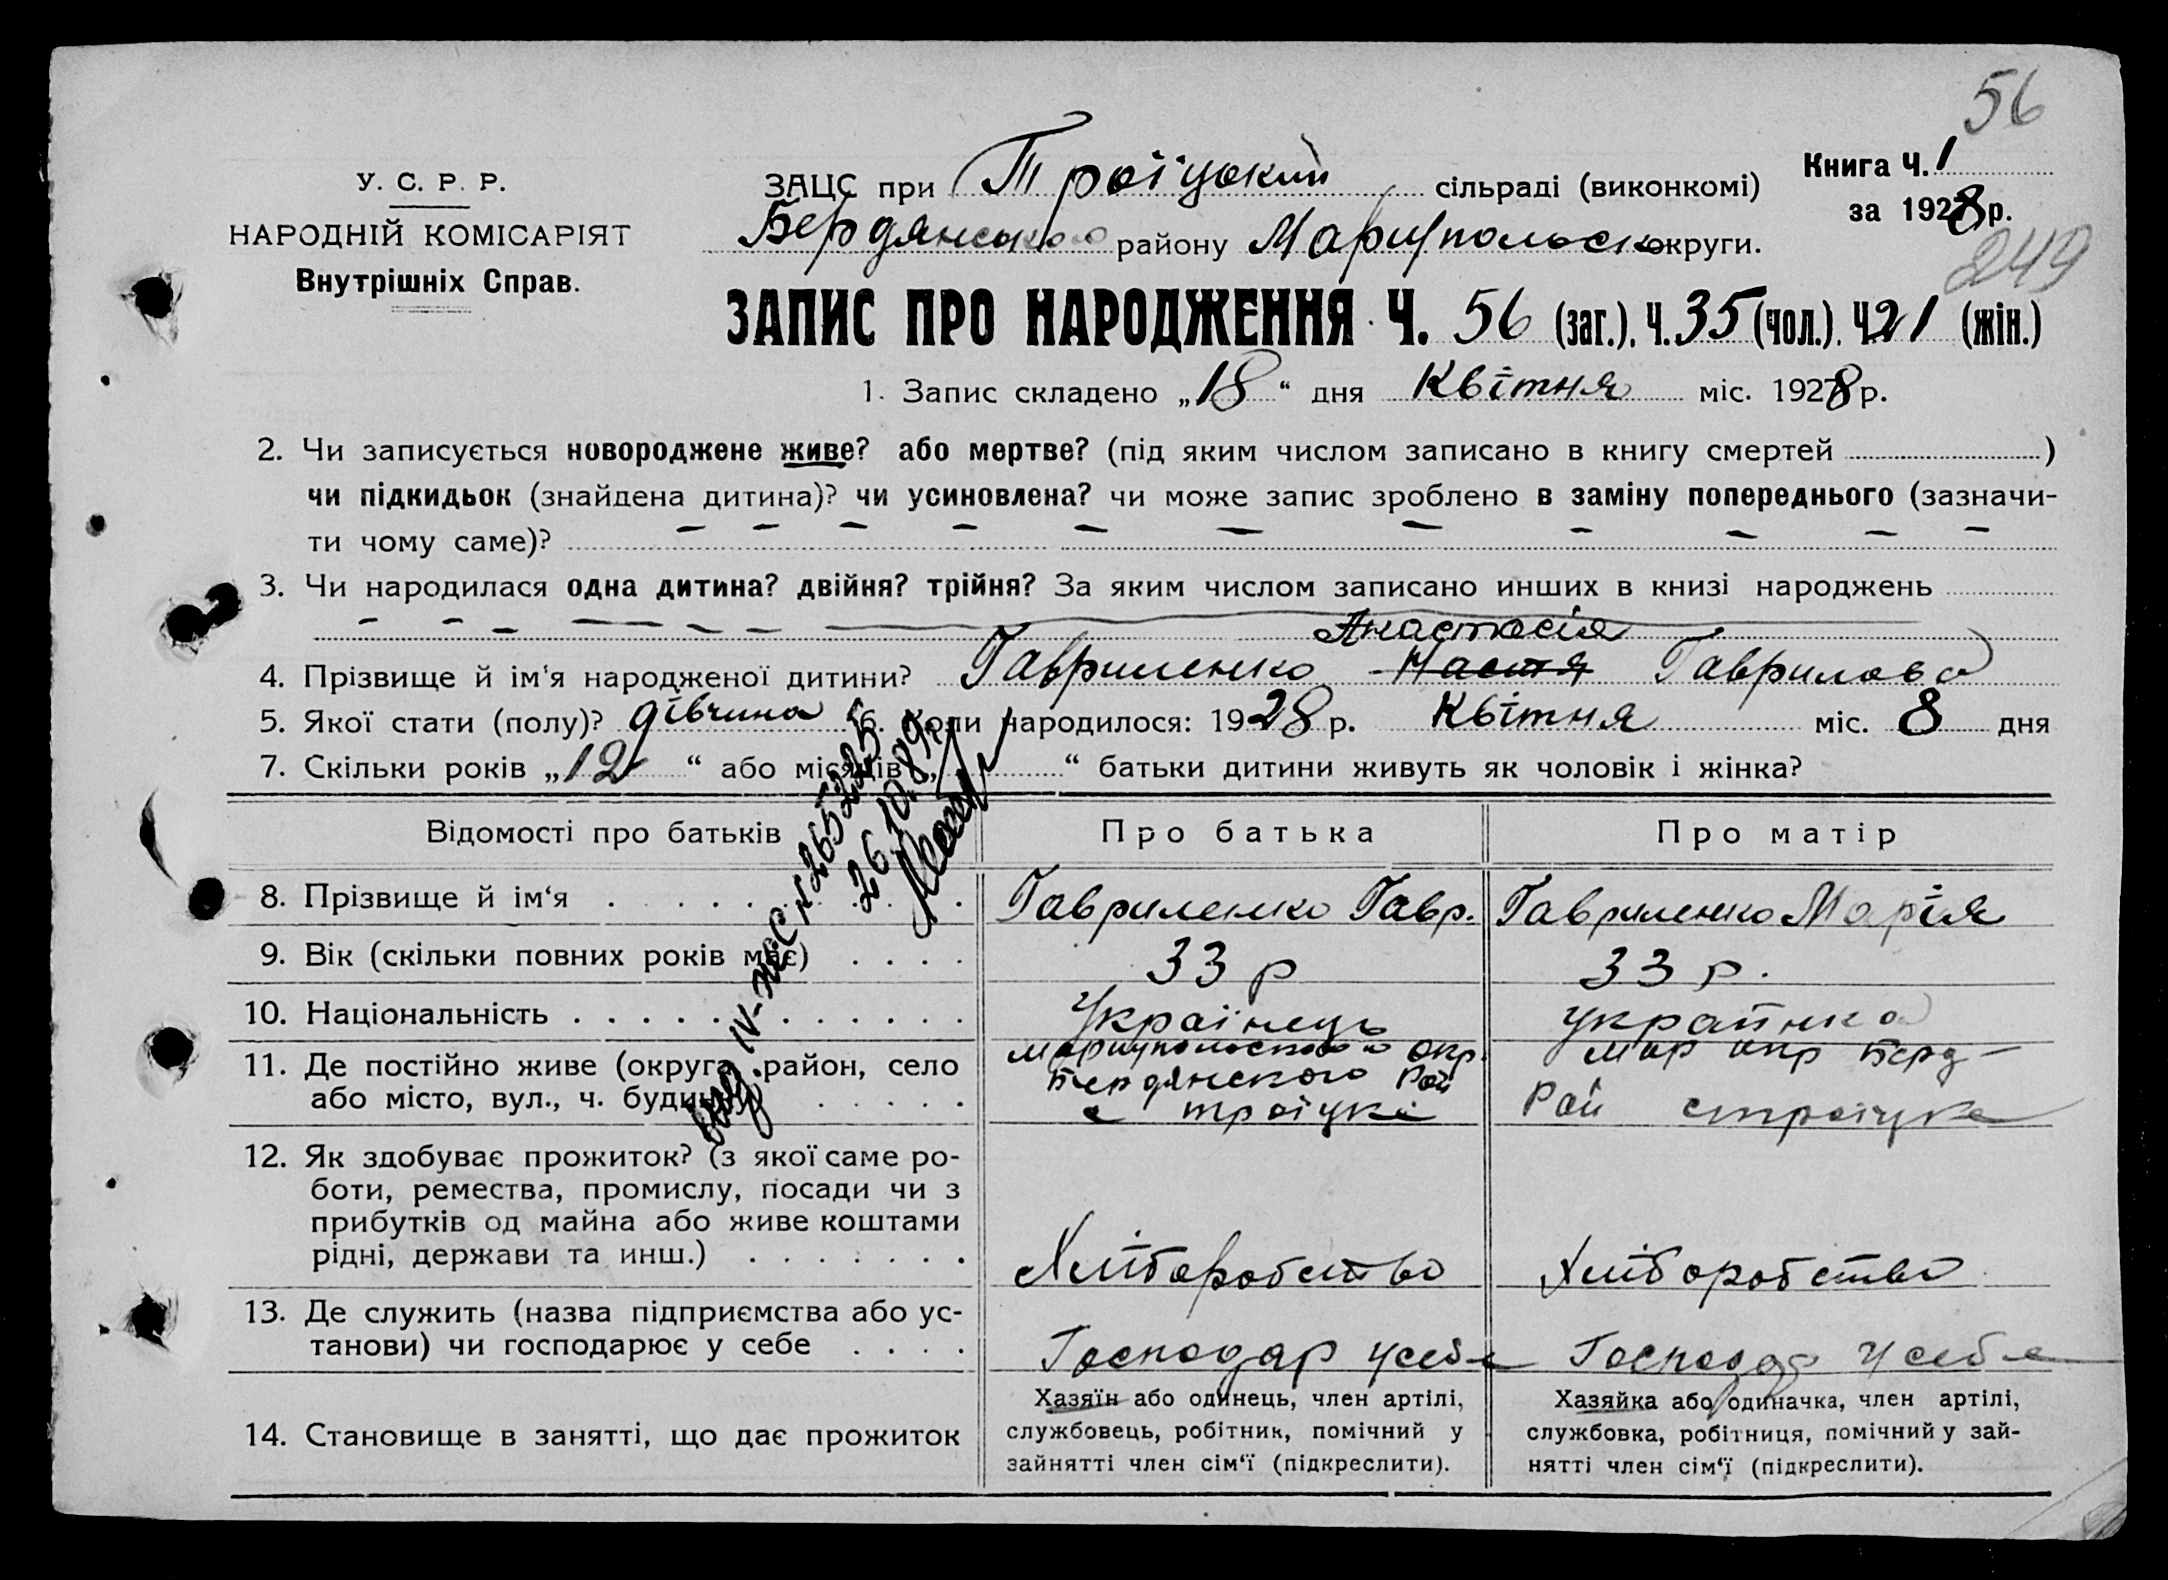 56
У. С. Р. Р.
НАРОДНІЙ КОМІСАРІЯТ
Внутрішніх Справ.
ЗАЦС при Троіцький сільраді (виконкомі)
Книга Ч. 1
за 1928 р.
Бердянського району Маріупольськ округи.
249
ЗАПИС ПРО НАРОДЖЕННЯ Ч. 56 (заг.), Ч. 35 (чол.). Ч. 21 (жін.)
1. Запис складено „18“ дня Квітня міс. 1928 р.
2. Чи записується новороджене живе? або мертве? (під яким числом записано в книгу смертей )
чи підкидьок (знайдена дитина)? чи усиновлена? чи може запис зроблено в заміну попереднього (зазначи-
ти чому саме)? — — — — — — — — — — —
3. Чи народилася одна дитина? двійня? трійня? За яким числом записано инших в книзі народжень
— — — — — — —
Анастасія
4. Прізвище й ім‘я народженої дитини? Гавриленко Настя Гаврилова
5. Якої стати (полу)? дівчина 6. Коли народилося: 1928 р. Квітня міс. 8 дня
7. Скільки років „12“ або місяців „ “ батьки дитини живуть як чоловік і жінка?
вид. IV-жс № 2652255
26.10.89
Відомості про батьків
Про батька
Про матір
8. Прізвище й ім‘я
Гавриленко Гавр.
Гавриленко Марія
9. Вік (скільки повних років має)
33 р
33 р.
10. Національність
Українець
українка
11. Де постійно живе (округа, район, село
або місто, вул., ч. будин.)
Мариупольского окр.
Бердянского Рай
с троіцке
Мар окр Берд—
Рай строіцке
12. Як здобуває прожиток? (з якої саме ро-
боти, ремества, промислу, посади чи з
прибутків од майна або живе коштами
рідні, держави та инш.)
Хліборобство
Хліборобство
13. Де служить (назва підприємства або ус-
танови) чи господарює у себе
Господар усебе
Господар усебе
14. Становище в занятті, що дає прожиток
Хазяїн або одинець, член артілі,
службовець, робітник, помічний у
зайнятті член сім‘ї (підкреслити).
Хазяйка або одиначка, член артілі,
службовка, робітниця, помічний у зай-
нятті член сім‘ї (підкреслити).